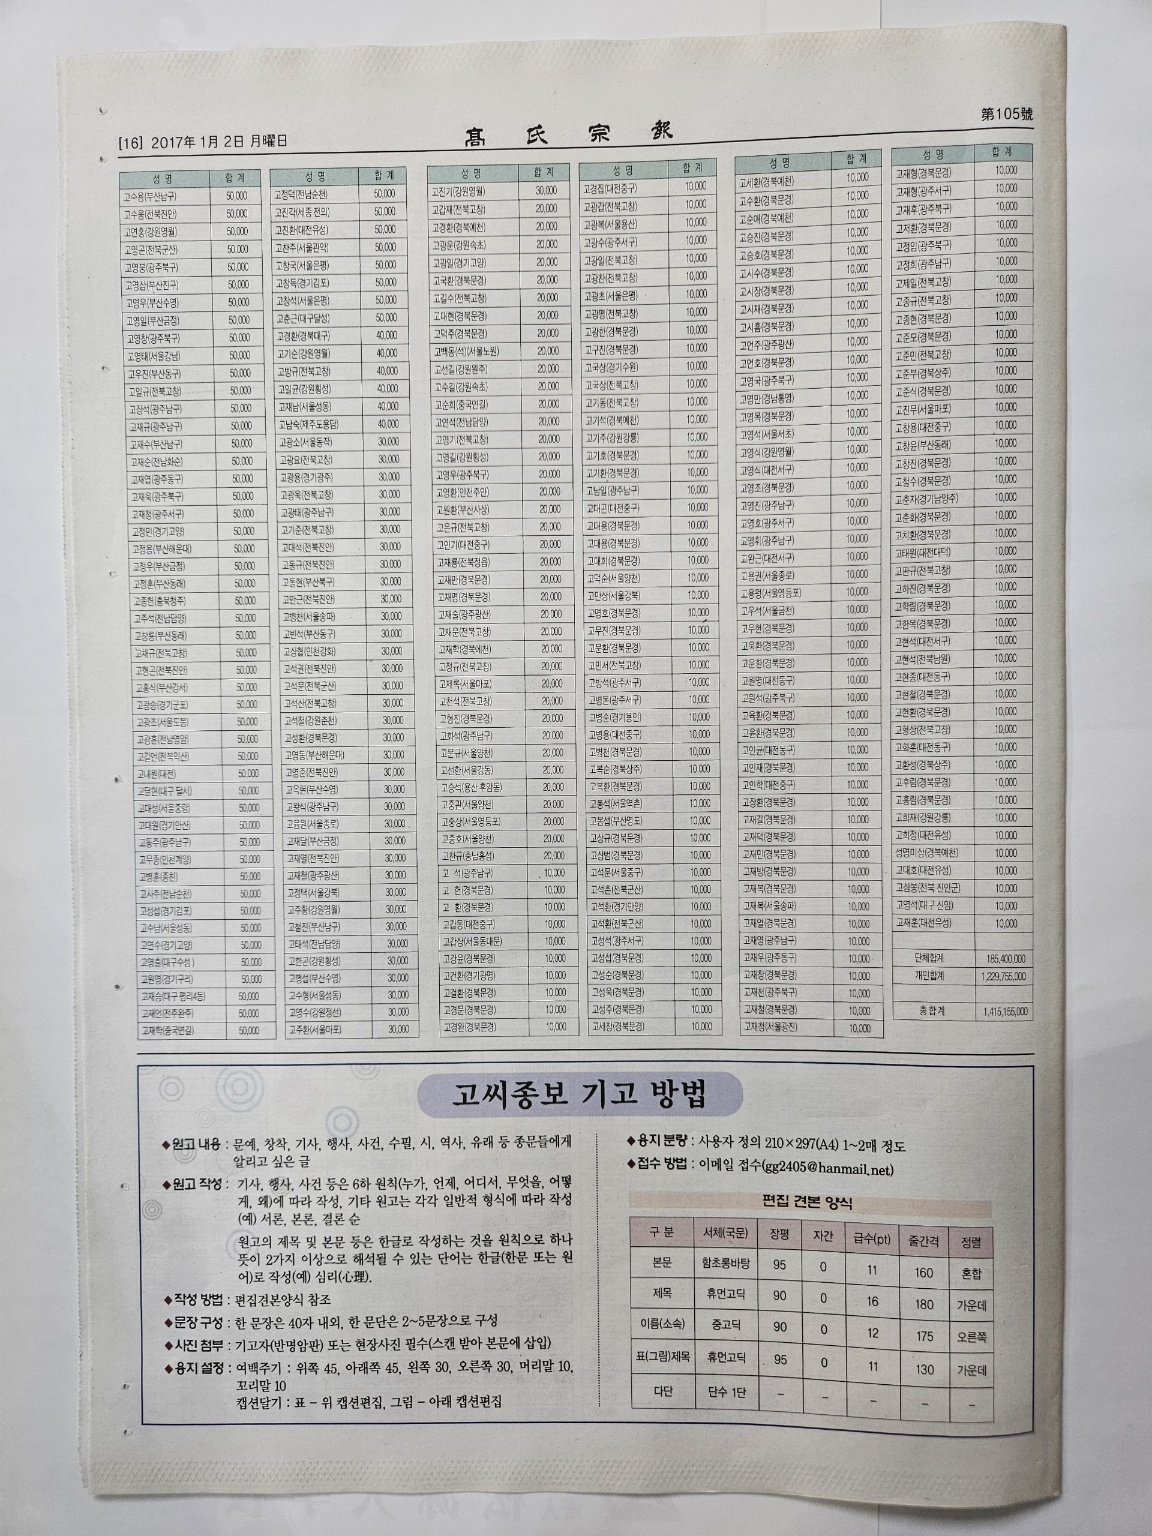 [16] 2017年 1月 2日 月曜日
高 氏 宗 報
第105號
성 명 합 계
고수용(부산남구) 50,000
고수용(전북진안) 50,000
고연홍(강원영월) 50,000
고영곤(전북군산) 50,000
고영붕(광주북구) 50,000
고영삼(부산진구) 50,000
고영우(부산수영) 50,000
고영일(부산금정) 50,000
고영창(광주북구) 50,000
고영태(서울강남) 50,000
고우진(부산동구) 50,000
고일규(전북고창) 50,000
고장석(광주남구) 50,000
고재규(광주남구) 50,000
고재수(부산남구) 50,000
고재순(전남화순) 50,000
고재열(광주동구) 50,000
고재욱(광주북구) 50,000
고재청(광주서구) 50,000
고정민(경기고양) 50,000
고정용(부산해운대) 50,000
고정우(부산금정) 50,000
고정훈(부산동래) 50,000
고종헌(충북청주) 50,000
고주석(전남담양) 50,000
고창룡(부산동래) 50,000
고채규(전북고창) 50,000
고현곤(전북진안) 50,000
고홍식(부산강서) 50,000
고광승(경기군포) 50,000
고광조(서울도봉) 50,000
고광홍(전남영암) 50,000
고길언(전북익산) 50,000
고내원(대전) 50,000
고담현(대구 달서) 50,000
고대성(서울중랑) 50,000
고대원(경기안산) 50,000
고동주(광주남구) 50,000
고무종(인천계양) 50,000
고병훈(홍천) 50,000
고사주(전남순천) 50,000
고성섭(경기김포) 50,000
고수남(서울성동) 50,000
고연수(경기고양) 50,000
고영출(대구수성) 50,000
고원영(경기구리) 50,000
고재승(대구 평리4동) 50,000
고재언(전주완주) 50,000
고재학(중국연길) 50,000
성 명 합 계
고정덕(전남순천) 50,000
고진각(세종 전의) 50,000
고진환(대전유성) 50,000
고찬주(서울관악) 50,000
고창국(서울은평) 50,000
고창득(경기김포) 50,000
고창석(서울은평) 50,000
고춘근(대구달성) 50,000
고경환(경북대구) 40,000
고기순(강원영월) 40,000
고방규(전북고창) 40,000
고일균(강원횡성) 40,000
고재남(서울성동) 40,000
고남숙(제주도용담) 40,000
고광소(서울동작) 30,000
고광요(전북고창) 30,000
고광용(경기광주) 30,000
고광욱(전북고창) 30,000
고광태(광주남구) 30,000
고기준(전북고창) 30,000
고대석(전북진안) 30,000
고동규(전북진안) 30,000
고동현(부산북구) 30,000
고만근(전북진안) 30,000
고병천(서울송파) 30,000
고빈석(부산동구) 30,000
고상협(인천강화) 30,000
고석권(전북진안) 30,000
고석문(전북군산) 30,000
고석산(전북고창) 30,000
고석철(강원춘천) 30,000
고성환(경북문경) 30,000
고영동(부산해운대) 30,000
고영준(전북진안) 30,000
고옥현(부산수영) 30,000
고왕식(광주남구) 30,000
고음원(서울종로) 30,000
고재달(부산금정) 30,000
고재열(전북진안) 30,000
고재철(광주광산) 30,000
고정택(서울강북) 30,000
고주황(강원영월) 30,000
고철진(부산남구) 30,000
고태석(전남담양) 30,000
고한곤(강원횡성) 30,000
고행섭(부산수영) 30,000
고수형(서울성동) 30,000
고영수(강원정선) 30,000
고주환(서울마포) 30,000
성 명 합 계
고진기(강원영월) 30,000
고갑재(전북고창) 20,000
고경환(경북예천) 20,000
고광운(강원속초) 20,000
고광일(경기고양) 20,000
고국환(경북문경) 20,000
고길수(전북고창) 20,000
고대현(경북문경) 20,000
고덕주(경북문경) 20,000
고백동(석)(서울노원) 20,000
고선길(강원원주) 20,000
고수길(강원속초) 20,000
고순희(중국연길) 20,000
고연석(전남담양) 20,000
고영기(전북고창) 20,000
고영길(강원횡성) 20,000
고영우(광주북구) 20,000
고영환(인천주안) 20,000
고원환(부산사상) 20,000
고은규(전북고창) 20,000
고인기(대전중구) 20,000
고재룡(전북정읍) 20,000
고재만(경북문경) 20,000
고재명(경북문경) 20,000
고재술(광주광산) 20,000
고재운(전북고창) 20,000
고재학(경북예천) 20,000
고정규(전북고창) 20,000
고제록(서울마포) 20,000
고천석(전북고창) 20,000
고형진(경북문경) 20,000
고화석(광주남구) 20,000
고문규(서울양천) 20,000
고선한(서울강동) 20,000
고승석(용산 후암동) 20,000
고중관(서울양천) 20,000
고중상(서울영등포) 20,000
고중호(서울양천) 20,000
고찬규(충남홍성) 20,000
고 석(광주남구) 10,000
고 현(경북문경) 10,000
고 환(경북문경) 10,000
고갑동(대전중구) 10,000
고갑상(서울동대문) 10,000
고강윤(경북문경) 10,000
고건환(경기광명) 10,000
고결환(경북문경) 10,000
고경문(경북문경) 10,000
고경완(경북문경) 10,000
성 명 합 계
고경집(대전중구) 10,000
고광갑(전북고창) 10,000
고광복(서울용산) 10,000
고광수(광주서구) 10,000
고광일(전북고창) 10,000
고광찬(전북고창) 10,000
고광초(서울은평) 10,000
고광평(전북고창) 10,000
고광한(경북문경) 10,000
고구진(경북문경) 10,000
고국상(경기수원) 10,000
고국상(전북고창) 10,000
고기동(전북고창) 10,000
고기석(경북예천) 10,000
고기주(강원강릉) 10,000
고기호(경북문경) 10,000
고기환(경북문경) 10,000
고남일(광주남구) 10,000
고대곤(대전중구) 10,000
고대용(경북문경) 10,000
고대용(경북문경) 10,000
고대희(경북문경) 10,000
고덕순(서울양천) 10,000
고만상(서울강북) 10,000
고명호(경북문경) 10,000
고무진(경북문경) 10,000
고문환(경북문경) 10,000
고민서(전북고창) 10,000
고방석(광주서구) 10,000
고병돈(광주서구) 10,000
고병순(경기용인) 10,000
고병용(대전중구) 10,000
고병천(경북문경) 10,000
고복순(경북상주) 10,000
고복환(경북문경) 10,000
고봉석(서울역촌) 10,000
고봉섭(부산영도) 10,000
고상규(경북문경) 10,000
고상범(경북문경) 10,000
고석문(서울중구) 10,000
고석훈(전북군산) 10,000
고석환(경기안양) 10,000
고석환(전북군산) 10,000
고성석(광주서구) 10,000
고성섭(경북문경) 10,000
고성순(경북문경) 10,000
고성욱(경북문경) 10,000
고성주(경북문경) 10,000
고세창(경북문경) 10,000
성 명 합 계
고세환(경북예천) 10,000
고수환(경북문경) 10,000
고순예(경북예천) 10,000
고승진(경북문경) 10,000
고승호(경북문경) 10,000
고시수(경북문경) 10,000
고시장(경북문경) 10,000
고시재(경북문경) 10,000
고시흠(경북문경) 10,000
고언주(광주광산) 10,000
고언호(경북문경) 10,000
고영국(광주북구) 10,000
고영만(경남통영) 10,000
고영목(경북문경) 10,000
고영석(서울서초) 10,000
고영식(강원영월) 10,000
고영식(대전서구) 10,000
고영조(경북문경) 10,000
고영진(광주남구) 10,000
고영호(광주서구) 10,000
고영휘(광주남구) 10,000
고완근(대전서구) 10,000
고용권(서울종로) 10,000
고용평(서울영등포) 10,000
고우석(서울금천) 10,000
고우현(경북문경) 10,000
고욱환(경북문경) 10,000
고운환(경북문경) 10,000
고원명(대전동구) 10,000
고원석(광주북구) 10,000
고육환(경북문경) 10,000
고윤환(경북문경) 10,000
고인균(대전동구) 10,000
고인재(경북문경) 10,000
고인학(대전중구) 10,000
고장환(경북문경) 10,000
고재길(경북문경) 10,000
고재덕(경북문경) 10,000
고재민(경북문경) 10,000
고재방(경북문경) 10,000
고재복(경북문경) 10,000
고재복(서울송파) 10,000
고재열(경북문경) 10,000
고재영(광주남구) 10,000
고재우(광주동구) 10,000
고재창(경북문경) 10,000
고재천(광주북구) 10,000
고재철(경북문경) 10,000
고재청(서울광진) 10,000
성 명 합 계
고재형(경북문경) 10,000
고재형(광주서구) 10,000
고재후(광주북구) 10,000
고저환(경북문경) 10,000
고정임(광주북구) 10,000
고정희(광주남구) 10,000
고제일(전북고창) 10,000
고종규(전북고창) 10,000
고종현(경북문경) 10,000
고준모(경북문경) 10,000
고준민(전북고창) 10,000
고준부(경북상주) 10,000
고준식(경북문경) 10,000
고진무(서울마포) 10,000
고창용(대전중구) 10,000
고창윤(부산동래) 10,000
고창진(경북문경) 10,000
고철수(경북문경) 10,000
고춘자(경기남양주) 10,000
고춘화(경북문경) 10,000
고치환(경북문경) 10,000
고태원(대전대덕) 10,000
고판규(전북고창) 10,000
고하진(경북문경) 10,000
고학림(경북문경) 10,000
고한목(경북문경) 10,000
고현석(대전서구) 10,000
고현석(전북남원) 10,000
고현종(대전동구) 10,000
고현철(경북문경) 10,000
고현환(경북문경) 10,000
고형상(전북고창) 10,000
고화훈(대전동구) 10,000
고환성(경북상주) 10,000
고후림(경북문경) 10,000
고흥림(경북문경) 10,000
고희재(강원강릉) 10,000
고희정(대전유성) 10,000
성명미상(경북예천) 10,000
고대호(대전유성) 10,000
고삼봉(전북 진안군) 10,000
고영석(대구 신암) 10,000
고재훈(대전유성) 10,000
단체합계 185,400,000
개인합계 1,229,755,000
총 합계 1,415,155,000
고씨종보 기고 방법
◆원고 내용 : 문예, 창작, 기사, 행사, 사건, 수필, 시, 역사, 유래 등 종문들에게
알리고 싶은 글
◆원고 작성 : 기사, 행사, 사건 등은 6하 원칙(누가, 언제, 어디서, 무엇을, 어떻
게, 왜)에 따라 작성, 기타 원고는 각각 일반적 형식에 따라 작성
(예) 서론, 본론, 결론 순
원고의 제목 및 본문 등은 한글로 작성하는 것을 원칙으로 하나
뜻이 2가지 이상으로 해석될 수 있는 단어는 한글(한문 또는 원
어)로 작성(예) 심리(心理).
◆작성 방법 : 편집견본양식 참조
◆문장 구성 : 한 문장은 40자 내외, 한 문단은 2~5문장으로 구성
◆사진 첨부 : 기고자(반명암판) 또는 현장사진 필수(스캔 받아 본문에 삽입)
◆용지 설정 : 여백주기 : 위쪽 45, 아래쪽 45, 왼쪽 30, 오른쪽 30, 머리말 10,
꼬리말 10
캡션달기 : 표 – 위 캡션편집, 그림 – 아래 캡션편집
◆용지 분량 : 사용자 정의 210×297(A4) 1~2매 정도
◆접수 방법 : 이메일 접수(gg2405@hanmail.net)
편집 견본 양식
구 분 서체(국문) 장평 자간 급수(pt) 줄간격 정렬
본문 함초롱바탕 95 0 11 160 혼합
제목 휴먼고딕 90 0 16 180 가운데
이름(소속) 중고딕 90 0 12 175 오른쪽
표(그림)제목 휴먼고딕 95 0 11 130 가운데
다단 단수 1단 – – – – –